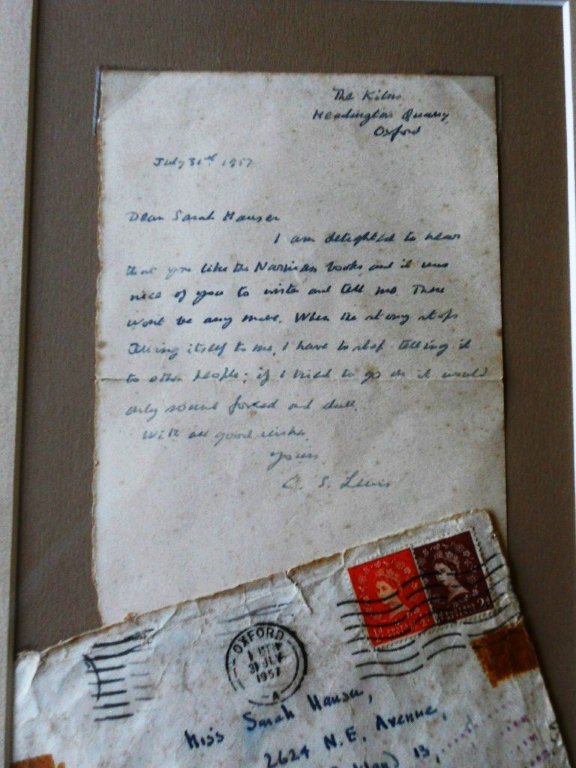 The Kilns
Headington Quarry
Oxford
July 31st 1957
Dear Sarah Hauser
I am delighted to hear
that you like the Narnian books and it was
nice of you to write and tell me. There
wont be any more. When the story stops
telling itself to me, I have to stop telling it
to other people; if I tried to go on it would
only sound forced and dull.
With all good wishes
Yours
C. S. Lewis
OXFORD
31 JLY
1957
A
Miss Sarah Hauser,
2624 N.E. Avenue,
13,